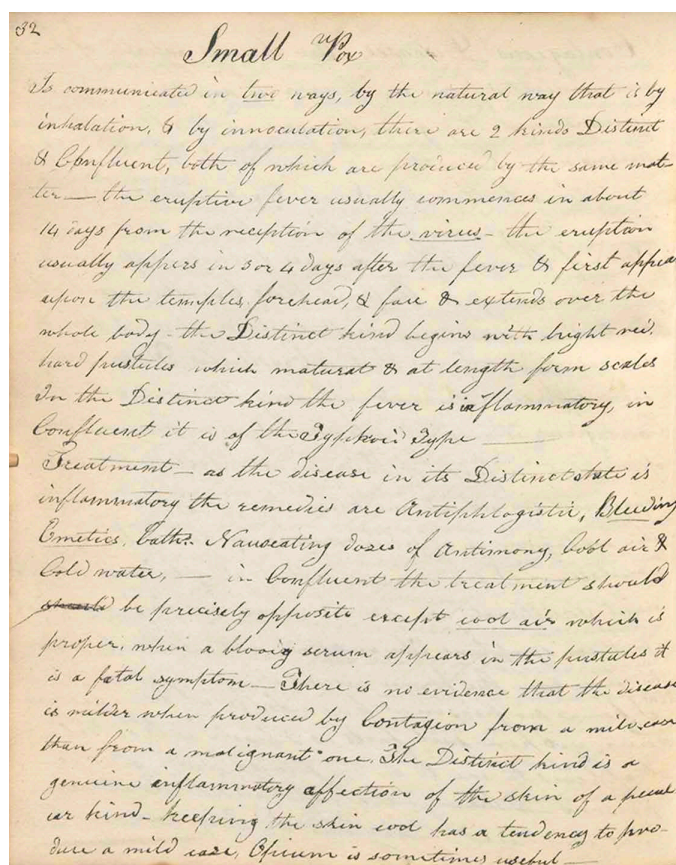 32
Small Pox
Is communicated in two ways, by the natural way that is by
inhalation, & by innoculation, there are 2 kinds Distinct
& Confluent, both of which are produced by the same mat
ter — the eruptive fever usually commences in about
14 days from the reception of the virus — the eruption
usually appers in 3 or 4 days after the fever & first appea
upon the temples, forehead, & face & extends over the
whole body — the Distinct kind begins with bright red.
hard pustules which maturat & at length form scales
In the Distinct kind the fever is inflammatory, in
Confluent it is of the Typhoid Type —
Treatment — as the disease in its Distinct state is
inflammatory the remedies are Antiphlogistic, Bleeding
Emetics, Cath. Nauseating dozes of Antimony, Cool air &
Cold water, — in Confluent the treatment should
should be precisely opposite except cool air which is
proper, when a blooig serum appears in the pustules it
is a fatal symptom — There is no evidence that the disease
is milder when produced by Contagion from a mild case
than from a malignant one. The Distinct kind is a
genuine inflammatory affection of the skin of a pecul
iar kind — keeping the skin cool has a tendency to pro-
duce a mild case, Opium is sometimes useful —